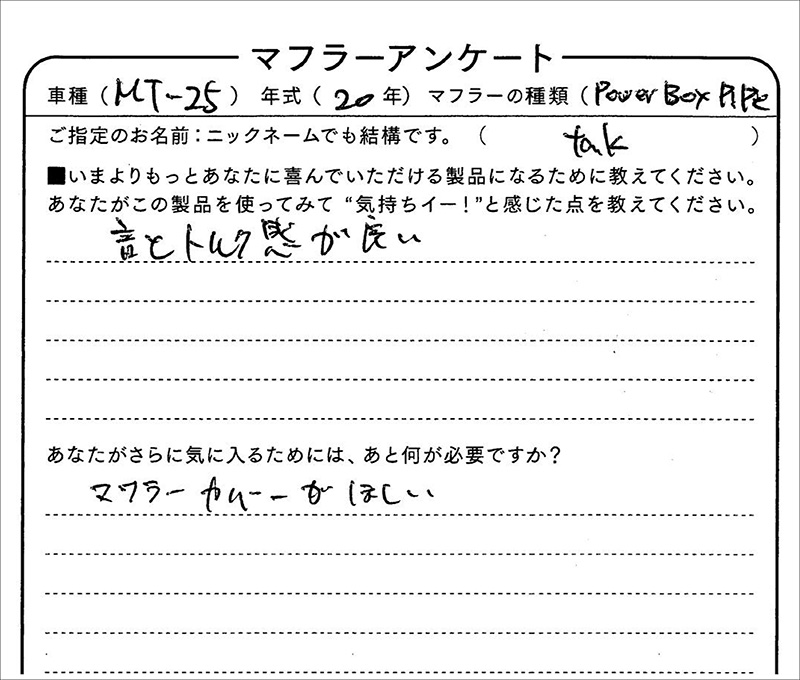 マフラーアンケート
車種（MT-25） 年式（20年）マフラーの種類（Power Box PIPE
ご指定のお名前：ニックネームでも結構です。（ tak ）
■いまよりもっとあなたに喜んでいただける製品になるために教えてください。
あなたがこの製品を使ってみて “気持ちイー！”と感じた点を教えてください。
音とトルク感が良い
あなたがさらに気に入るためには、あと何が必要ですか？
マフラーカバーがほしい